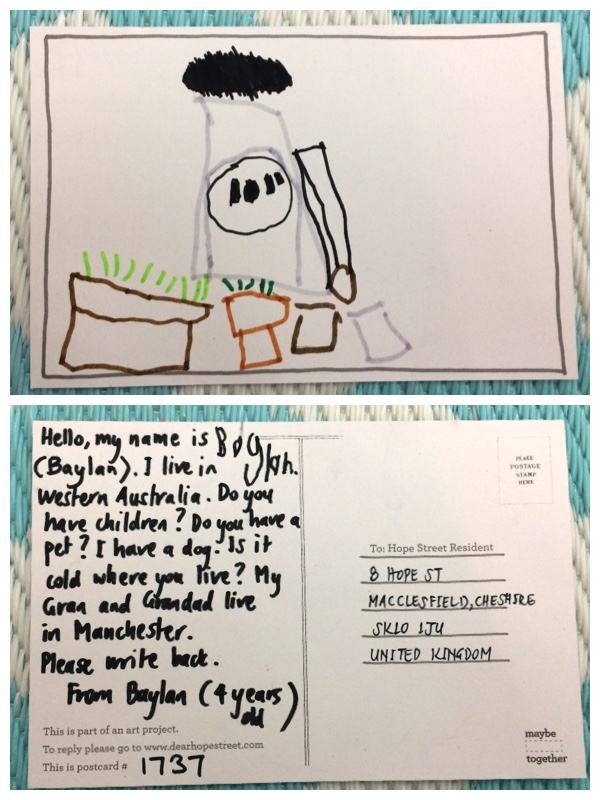 Hello, my name is Baylan.
(Baylan). I live in
Western Australia. Do you
have children? Do you have a
pet? I have a dog. Is it
cold where you live? My
Gran and Grandad live
in Manchester.
Please write back.
From Baylan (4 years
old)
This is part of an art project.
To reply please go to www.dearhopestreet.com
This is postcard # 1737
PLACE
POSTAGE
STAMP
HERE
To: Hope Street Resident
8 HOPE ST
MACCLESFIELD, CHESHIRE
SK10 1JU
UNITED KINGDOM
maybe
together